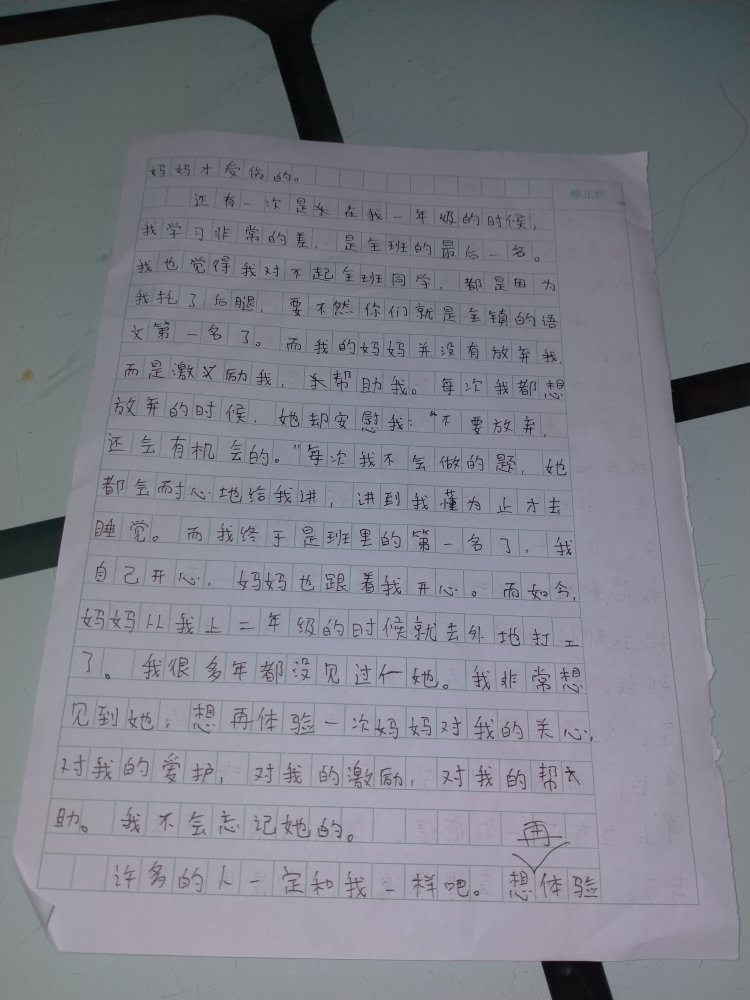 妈妈才受伤的。
修正栏
还有一次是在我一年级的时候，
我学习非常的差，是全班的最后一名。
我也觉得我对不起全班同学，都是因为
我托了后腿，要不然你们就是全镇的语
文第一名了。而我的妈妈并没有放弃我，
而是激励我，帮助我。每次我都想
放弃的时候，她却安慰我：“不要放弃，
还会有机会的。”每次我不会做的题，她
都会耐心地给我讲，讲到我懂为止才去
睡觉。而我终于是班里的第一名了，我
自己开心，妈妈也跟着我开心。而如今，
妈妈从我上二年级的时候就去外地打工
了。我很多年都没见过她。我非常想
见到她，想再体验一次妈妈对我的关心，
对我的爱护，对我的激励，对我的帮
助。我不会忘记她的。
许多的人一定和我一样吧。想再体验